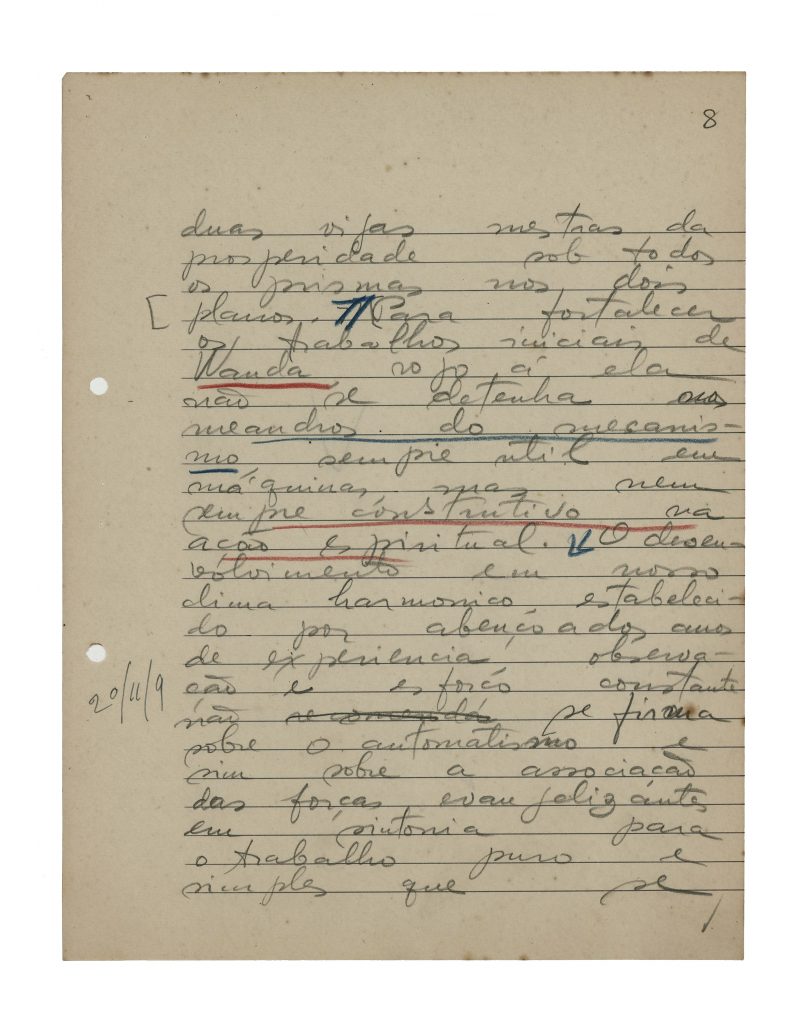 8
duas vigas mestras da
prosperidade sob todos
os prismas nos dois
[ planos. Para fortalecer
os trabalhos iniciais de
Wanda rogo á ela
não se detenha nos
meandros do mecanis-
mo sempre útil em
máquinas mas nem
sempre construtivo na
ação espiritual. O desen-
volvimento em nosso
clima harmonico estabeleci-
do por abençoados anos
de experiencia, observa-
ção e esforço constante
20/11/9
não recomenda se firma
sobre o automatismo e
sim sobre a associação
das forças evangelizantes
em sintonia para
o trabalho puro e
simples que se